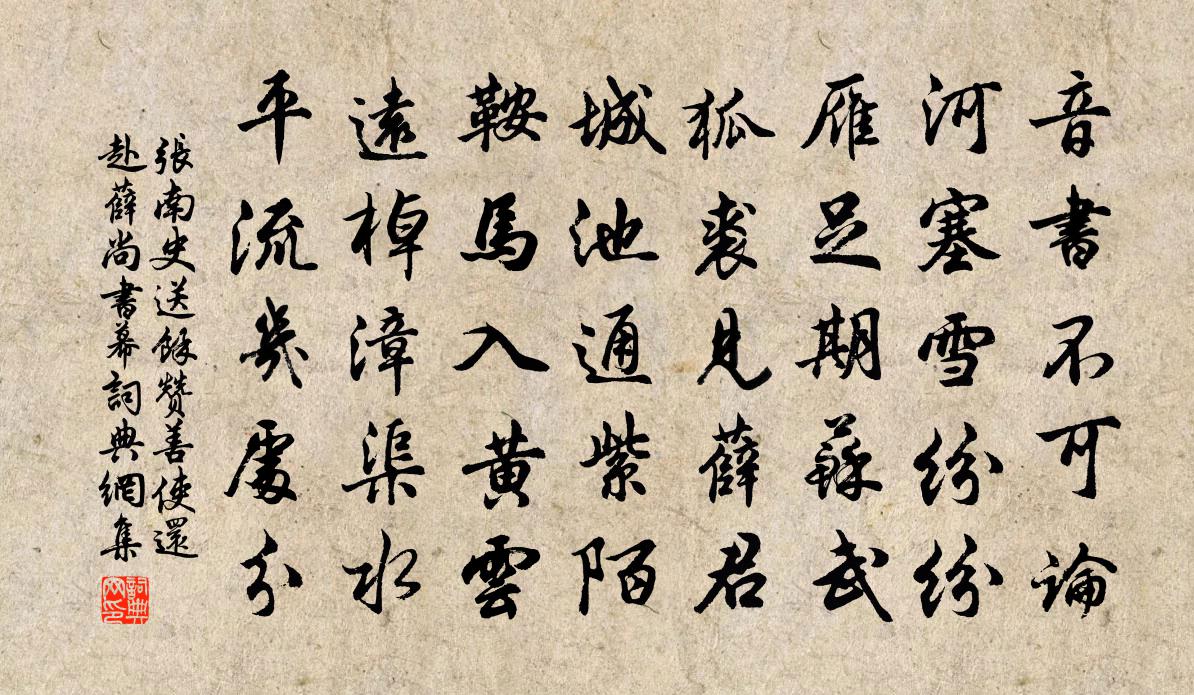 音書不可論
河塞雪紛紛
雁足期蘇武
狐裘見薛君
城池通紫陌
鞍馬入黃雲
遠棹漳渠水
平流幾處分
張南史送餘贊善使還
赴薛尚書幕詞典網集
詞典網印